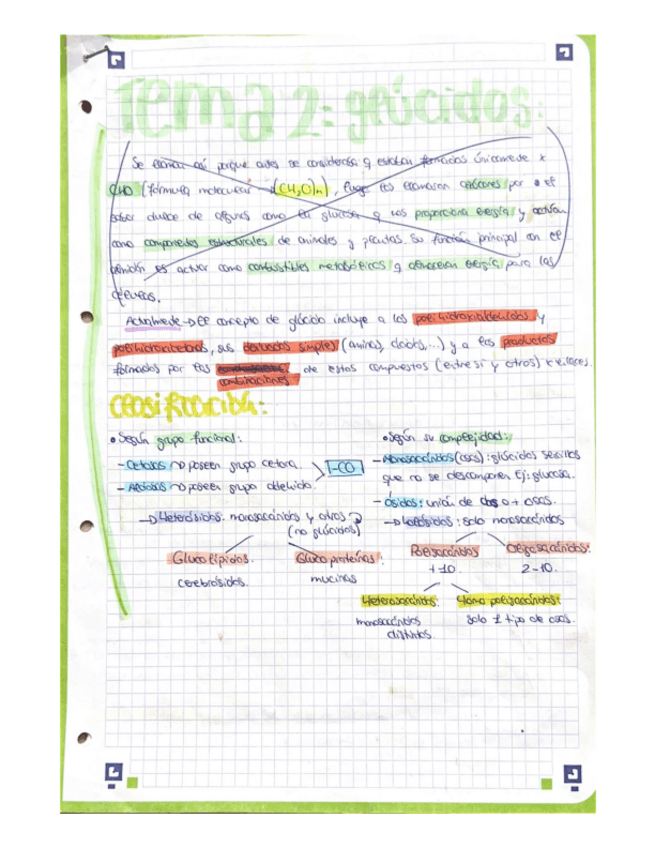 Tema 2: glúcidos:
Se llamaba así porque antes se consideraba q estaban formados únicamente x
CHO (fórmula molecular → (CH₂O)n), luego los llamaron azúcares por el
sabor dulce de algunos como la glucosa q nos proporciona energía y actúan
como componentes estructurales de animales y plantas. Su función principal con el
almidón es actuar como combustibles metabólicos q almacenan energía para las
células.
Actualmente → El concepto de glúcido incluye a los polihidroxialdehídos y
polihidroxicetonas, sus derivados simples (aminos, ácidos,...) y a los productos
formados por las de estos compuestos (entre sí y otros) x enlaces.
combinaciones
Clasificación:
• Según grupo funcional:
- Cetosas → poseen grupo cetona.
- Aldosas → poseen grupo aldehído.
-CO
→ Heterósidos: monosacáridos y otros
(no glúcidos)
Glucolípidos. Glucoproteínas.
cerebrósidos. mucinas
• Según su complejidad:
- Monosacáridos (osas): glúcidos sencillos
que no se descomponen Ej: glucosa.
- Ósidos: unión de dos o + osas.
→ Holósidos: solo monosacáridos
Polisacáridos Oligosacáridos.
+10. 2-10.
Heterosacáridos. Homo polisacáridos:
monosacáridos solo 1 tipo de osas.
distintos.